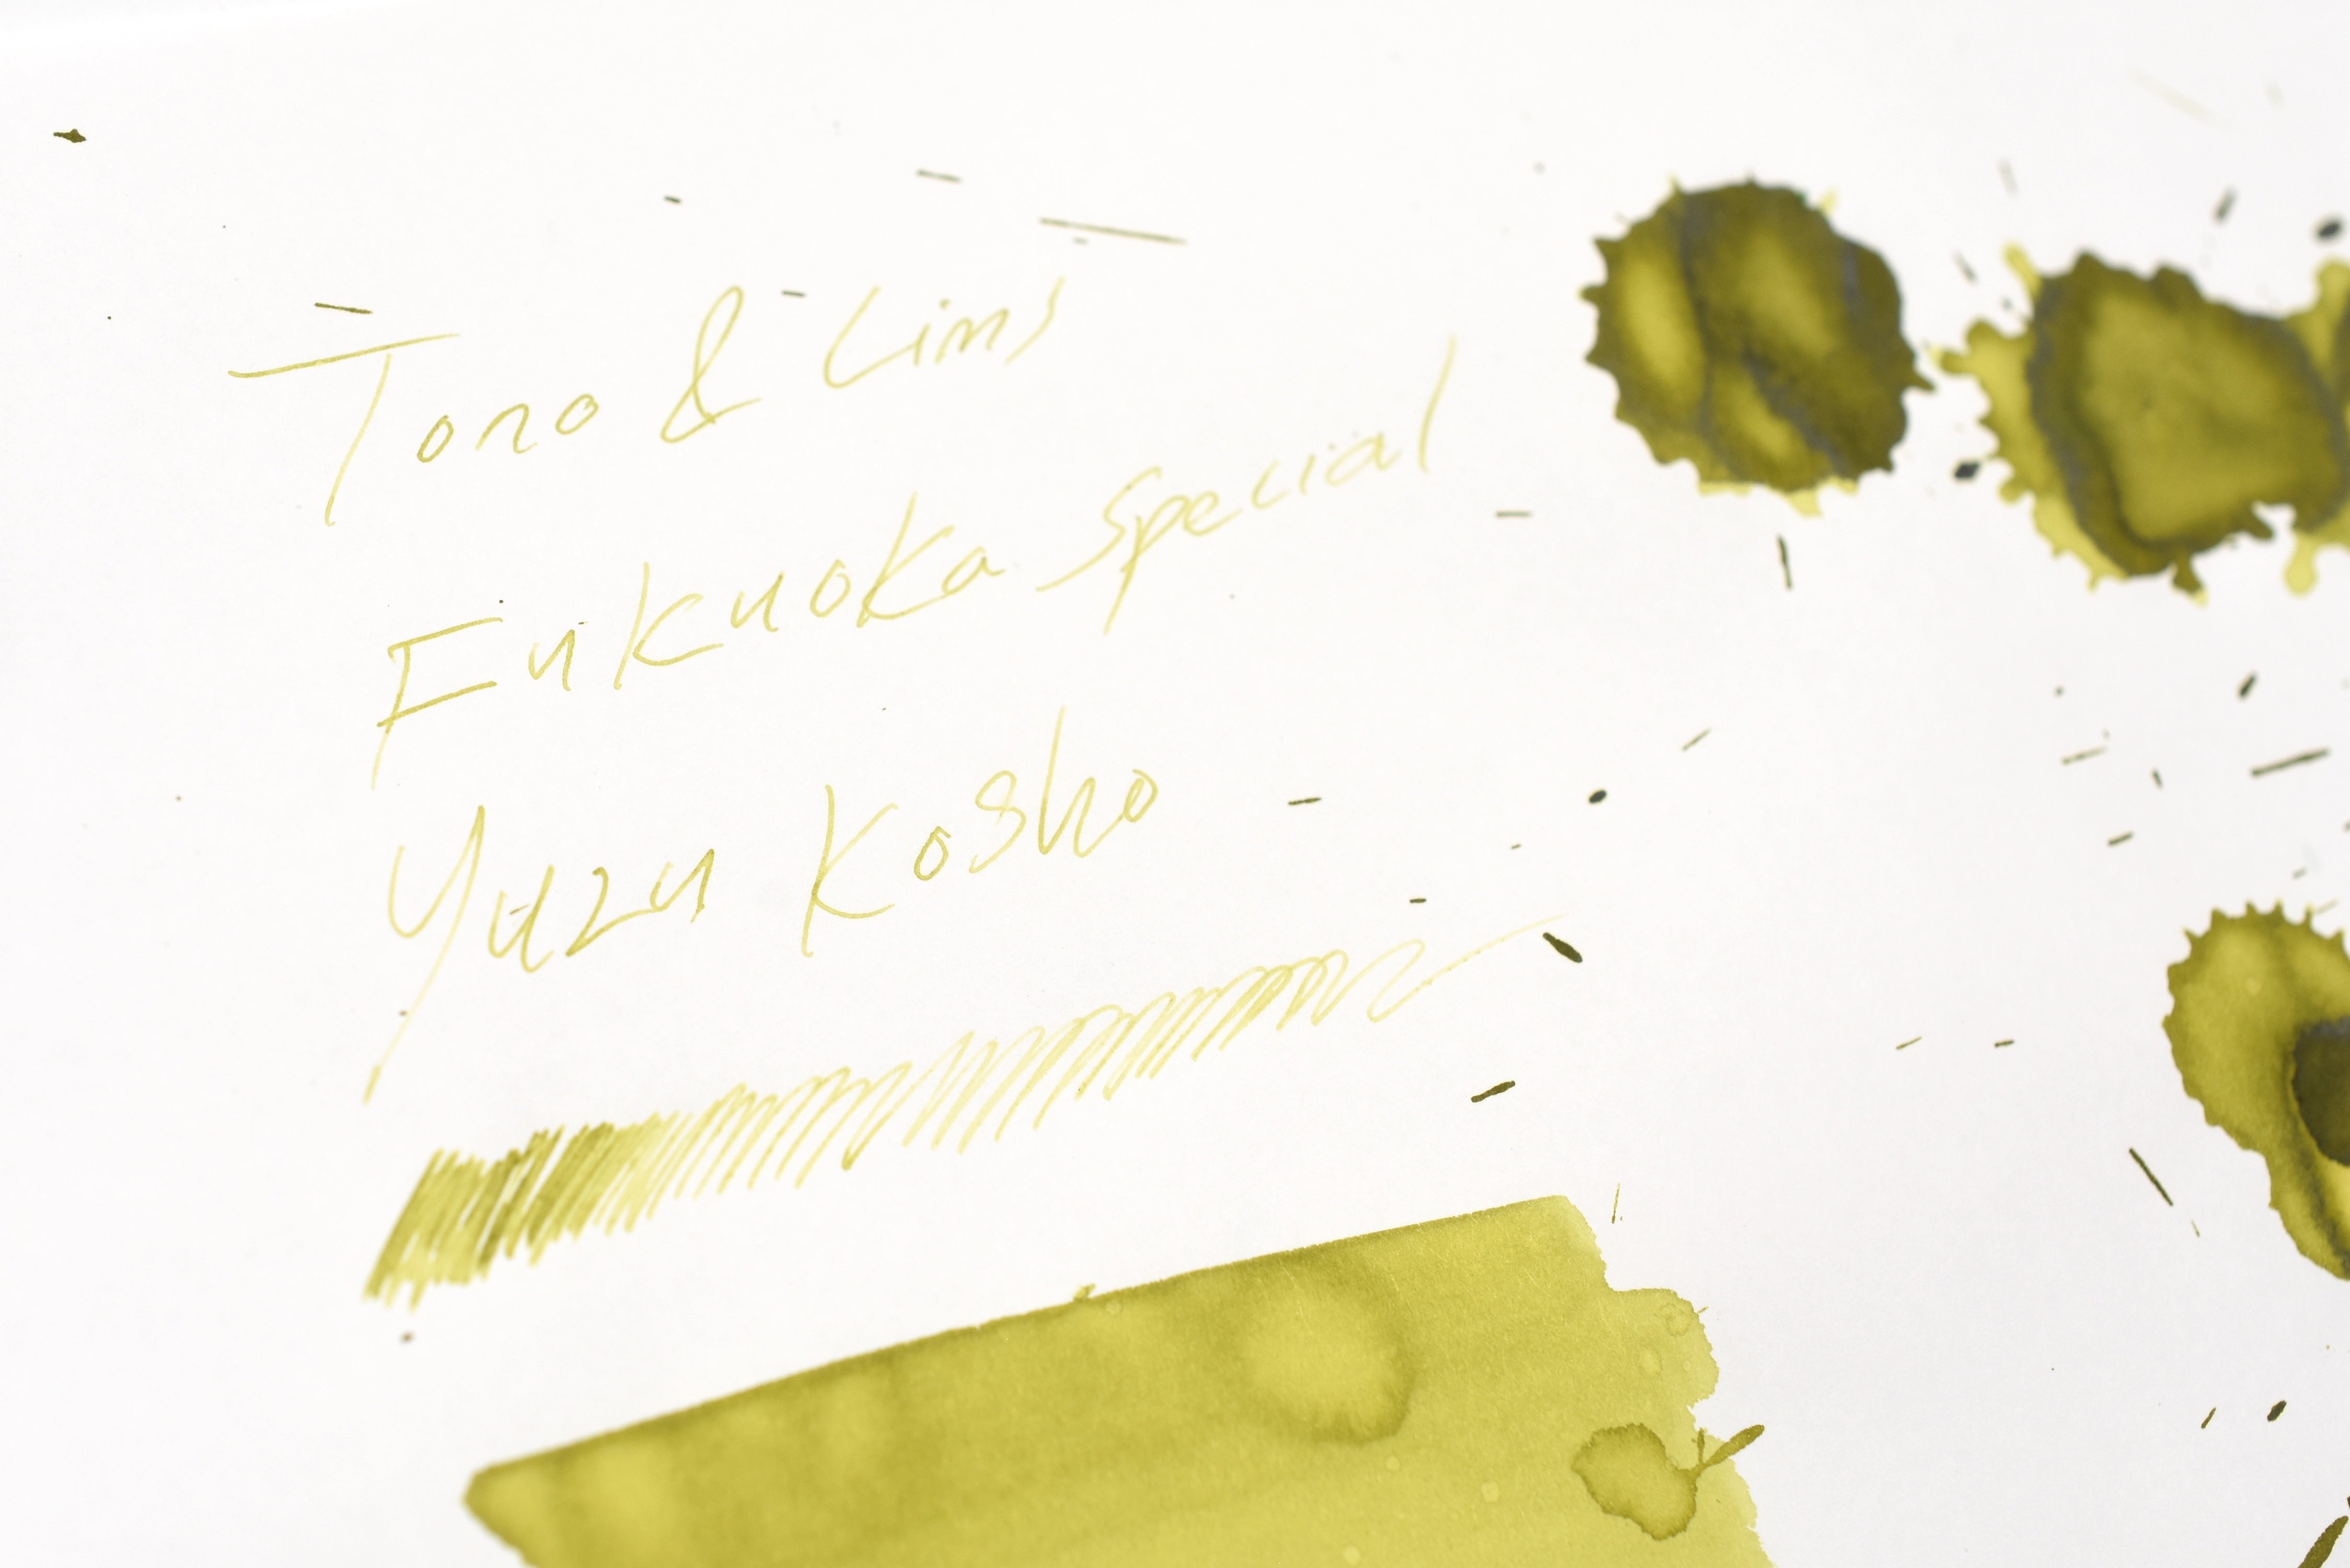 Tono & Lims
Fukuoka Special
Yuzu Kosho